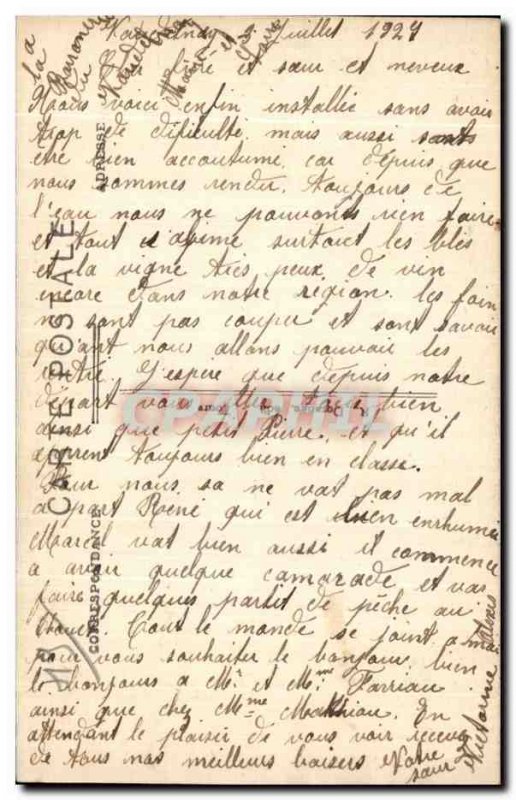 Juillet 1929
frère et sœur et neveux
Nous voici enfin installé sans avoir
trop de dificulté mais aussi
etre bien accoutumé car depuis que
nous sommes rendu. Toujours de
l'eau nous ne pouvons rien faire
et tout s'abime surtout les blés
et la vigne très peux de vin
encore dans notre région. les foin
ne sont pas couper et sont savoir
quant nous allons pouvoir les
rentré. J'espere que depuis notre
départ vous allez tous bien
ainsi que petit Pierre et qu'il
apprent toujours bien en classe.
Pour nous sa ne vat pas mal
a part René qui est bien enrhumé
Marcel vat bien aussi il commence
a avoir quelque camarade et vas
faire quelques partit de pêche au
Tout le monde se joint a moi
pour vous souhaiter le bonjour bien
le bonjours a Mr et Mme Farriau
ainsi que chez Mme En
attendant le plaisir de vous voir recever
de tous nos meilleurs baisers Votre
sœur
Victorine
CARTE POSTALE
ADRESSE
CORRESPONDANCE
CPARAMA